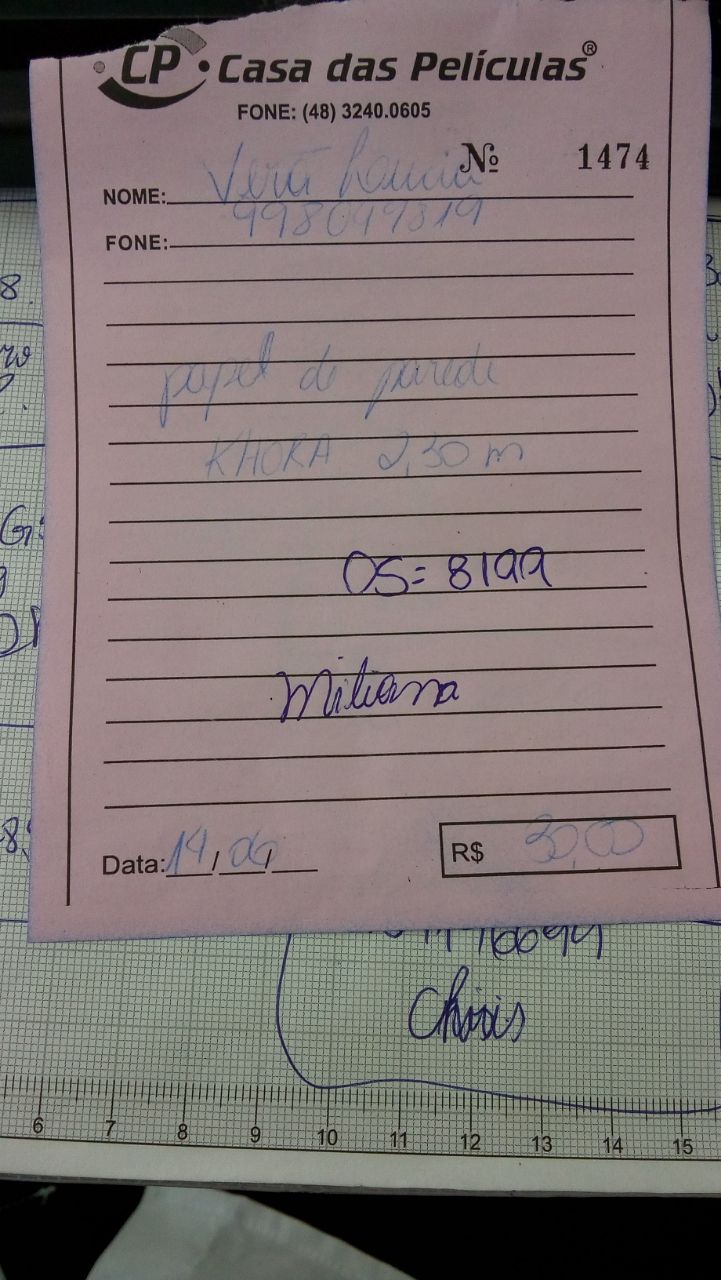 CP Casa das Películas®
FONE: (48) 3240.0605
Nº 1474
NOME: Vera Lucia
FONE: 998049319
papel de parede
KHORA 2,30 m
OS= 8199
Miliana
Data: 14/06/
R$ 30,00
Chris
6 7 8 9 10 11 12 13 14 15